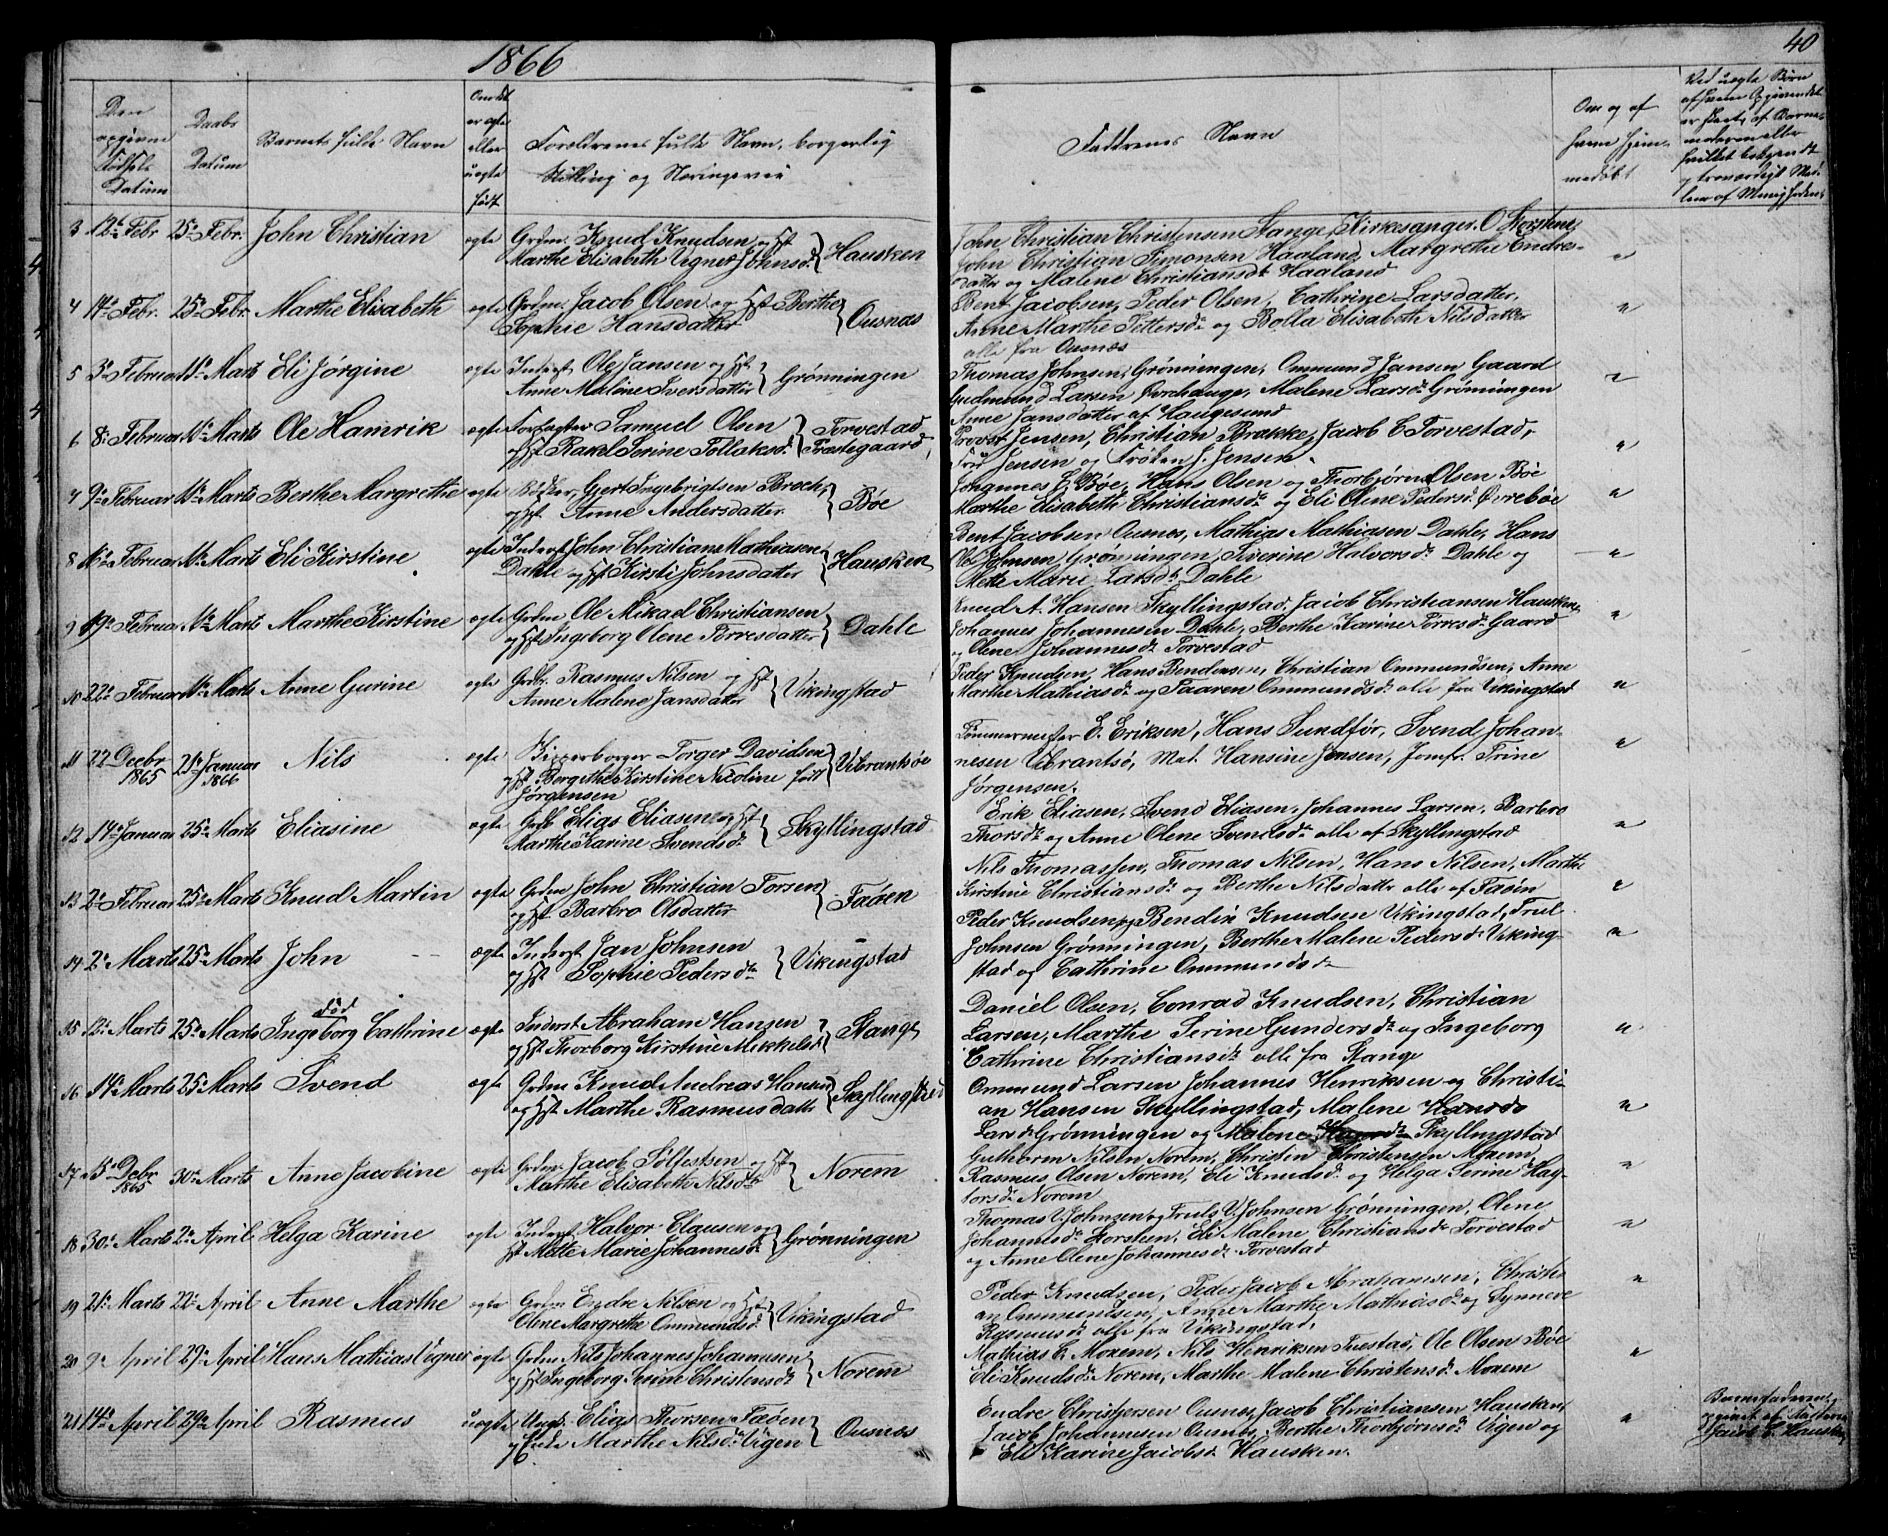 1866
40
Den opgivne Fødsels Datum
Daabs Datum
Barnets fulde Navn
Om det er ægte eller uægte født
Forældrenes fulde Navn, borgerlig Stilling og Næringsvei
Faddrenes Navn
Om og af hvem hjemmedøbt
Ved uægte Børn
3 12te Febr 25de Febr. John Christian ægte Grdm. Knud Knudsen og Hst
Marthe Elisabeth Vigner Johnsd. } Hausken
John Christian Christensen Stange, Kirkesanger O Storsteen,
John Christian Simonsen Haaland, Margrethe Endres-
datter og Malene Christiansdt Haaland
4 14de Febr. 25de Febr. Marthe Elisabeth ægte Grdm. Jacob Olsen og Hst Berthe
Sophie Hansdatter } Ousnæs
Bent Jacobsen, Peder Olsen, Cathrine Larsdatter,
Anne Marthe Pettersdr og Bolla Elisabeth Nilsdatter
alle fra Ousnæs
5 3de Februar 11te Marts Eli Jørgine ægte Inderst Ole Jansen og Hst
Anne Malene Iversdatter } Grønningen
Thomas Johnsen, Grønningen, Ommund Jansen Gaard
Gudmund Larsen Øvrehauge, Malene Larsdr Grønningen
Anne Jansdatter af Haugesund
6 8de Februar 11te Marts Ole Hamrik ægte Forpagter Samuel Olsen
og Hst Rakel Serine Tollaksdr } Torvestad Præstegaard,
Provst Jensen, Christian Brakke, Jacob C Torvestad,
Fru Jensen og Frøken J. Jensen.
7 9de Februar 11te Marts Berthe Margrethe ægte Bødker Gjert Ingebrigtsen Broch,
og Hst Anne Andersdatter } Bøe
Johannes E. Bøe, Hans Olsen og Thorbjørn Olsen Bøe
Marthe Elisabeth Christiansdr og Eli Olene Pedersdr Øvrebøe
8 11te Februar 11te Marts Eli Kirstine ægte Inderst John Christian Mathiasen
Dahle og Hst Kirsti Johnsdatter } Hausken
Bent Jacobsen Ousnes, Mathias Mathiasen Dahle, Hans
Vel Johnsen Grønningen, Siverine Halvorsdr Dahle og
Mette Marie Larsdr Dahle
9 19de Februar 11te Marts Marthe Kirstine ægte Grdm Ole Mikael Christiansen
og Hst Ingeborg Olene Torresdatter } Dahle
Knud A. Hansen Skyllingstad, Jacob Christiansen Hausken,
Johannes Johannesen Dahle, Berthe Karine Torresdr Gaard
og Olene Johannesdr Torvestad
10 22de Februar 11te Marts Anne Gurine ægte Grdbr. Rasmus Nilsen og Hst
Anne Malene Jansdatter } Vikingstad
Peder Knudsen, Hans Bendixsen, Christian Ommundsen, Anne
Marthe Mathiasdr og Taaren Ommundsdr alle fra Vikingstad
11 22 Decbr 1865 21de Januar 1866 Nils ægte Skipperborger Torger Davidsen
og Hst Bergithe Kirstine Nicoline født
Jørgensen } Vibrantsøe
Tømmermester E. Eriksen, Hans Sundfør, Svend Johan-
nesen Vibrantsø, Mad. Hansine Jensen, Jomfr. Trine
Jørgensen.
12 14de Januar 25de Marts Eliasine ægte Grdb Elias Eliasen og Hst
Marthe Karine Svendsdr } Skyllingstad
Erik Eliasen, Svend Eliasen, Johannes Larsen, Barbro
Thorsdr og Anne Olene Svendsdr alle af Skyllingstad
13 2de Februar 25de Marts Knud Martin ægte Grdm John Christian Torsen
og Hst Barbro Olsdatter } Faøen
Nils Thomassen, Thomas Nilsen, Hans Nilsen, Marthe
Kirstine Christiansdr og Berthe Nilsdattr alle af Faøen
14 2de Marts 25de Marts John ægte Inderst Jan Johnsen
og Hst Sophie Pedersdtr } Vikingstad
Peder Knudsen og Bendix Knudsen Vikingstad, Truls
Johnsen Grønningen, Berthe Malene Pedersdr Viking-
stad og Cathrine Ommundsdr
15 12te Marts 25de Marts død Ingeborg Cathrine ægte Inderst Abraham Hansen
og Hst Thorborg Kirstine Mikkelsd } Stange
Daniel Olsen, Conrad Knudsen, Christian
Larsen, Marthe Serine Gundersdr og Ingeborg
Cathrine Christiansdr alle fra Stange
16 14de Marts 25de Marts Svend ægte Grdm Knud Andreas Hansen
og Hst Marthe Rasmusdattr } Skyllingstad
Ommund Larsen Johannes Henriksen og Christi-
an Hansen Skyllingstad, Malene
Larsdr Grønningen og Malene Skyllingstad
17 15de Decbr 1865 30te Marts Anne Jacobine ægte Grdm. Jacob Sølfestsen og Hst
Marthe Elisabeth Nilsdtr } Norem
Guthorm Nilsen Norem, Christen Christensen Moxem,
Rasmus Olsen Norem, Eli Knudsdr og Helga Serine Hag-
torsdr Norem
18 30te Marts 2de April Helga Karine ægte Inderst Halvor Clausen og
Hst Mette Marie Johannesd } Grønningen
Thomas V. Johnsen og Truls V. Johnsen Grønningen, Olene
Johannesdr Storsteen, Eli Malene Christiansdr Torvestad
og Anne Olene Johannesdr Torvestad
19 21de Marts 22de April Anne Marthe ægte Grdm Endre Nilsen og Hst
Olene Margrethe Ommundsd } Vikingstad
Peder Knudsen, Peder Jacob Abrahamsen, Christi-
an Ommundsen, Anne Marthe Matthiasdr og Synneve
Rasmusdr alle fra Vikingstad,
20 9de April 29de April Hans Mathias Vigner ægte Grdm Nils Johannes Johannesen
og Hst Ingeborg Serine Christensdr } Norem
Mathias C. Moxem, Nils Henriksen Tuestad, Ole Olsen Bøe
Eli Knudsdr Norem, Marthe Malene Christensdr Moxem
21 14de April 29de April Rasmus uægte Ungk. Elias Thorsen Faøen
og Enke Marthe Nilsdr Vigen } Ousnæs
Endre Christensen Ousnes, Jacob Christiansen Hausken,
Jacob Johannesen Ousnes, Berthe Thorbjørnsdr Vigen og
Eli Karine Jacobsdr Hausken.
Barnefaderen
opgivet af Fadderen
Jacob C. Hausken